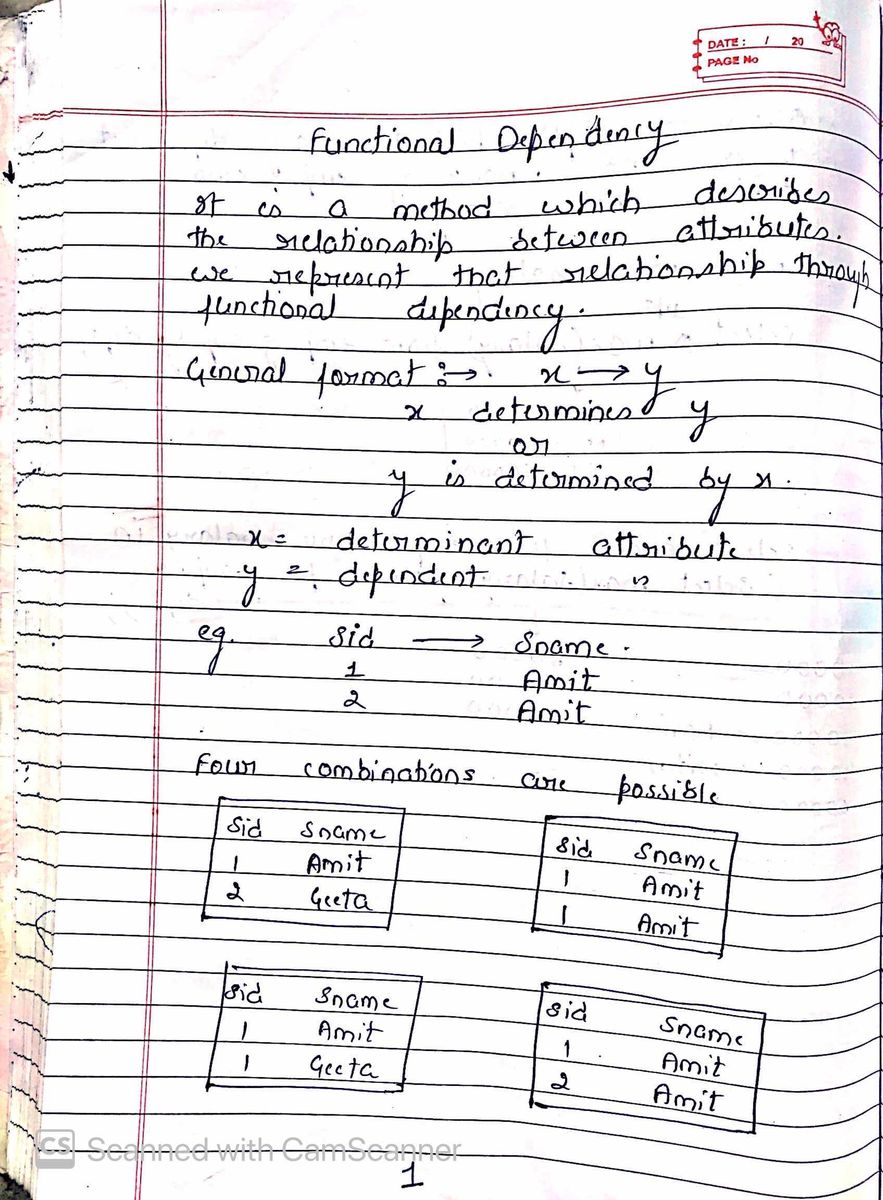 DATE: / 20
PAGE No
Functional Dependency
It is a method which describes
the relationship between attributes.
we represent that relationship through
functional dependency.
General format :→. x → y
x determines y
or
y is determined by x.
x = determinant attribute
y = dependent "
eg. Sid → Sname.
1 Amit
2 Amit
Four combinations are possible
Sid Sname
1 Amit
2 Geeta
Sid Sname
1 Amit
1 Amit
Sid Sname
1 Amit
1 Geeta
Sid Sname
1 Amit
2 Amit
CS Scanned with CamScanner
1